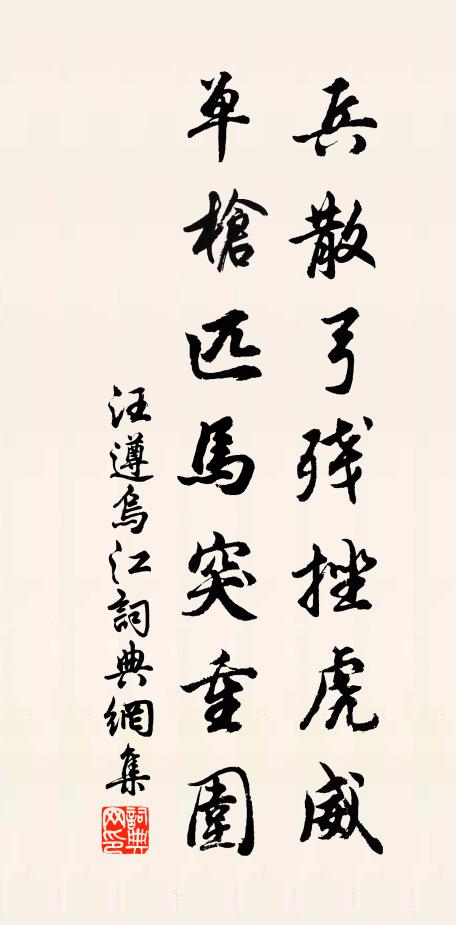 兵散弓残挫虎威
单槍匹馬突重圍
汪遵烏江詞典網集
詞典网印